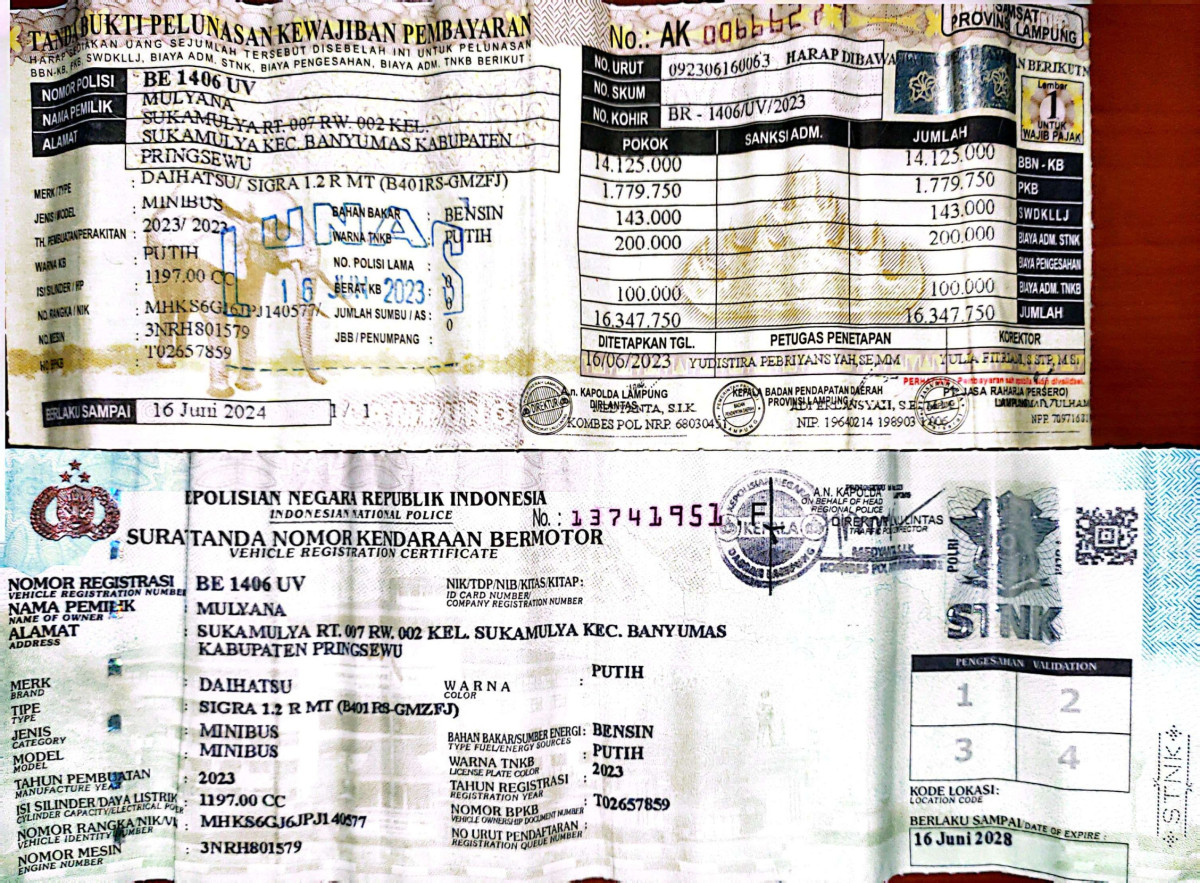 TANDA BUKTI PELUNASAN KEWAJIBAN PEMBAYARAN
UANG SEJUMLAH TERSEBUT DISEBELAH INI UNTUK PELUNASAN
BBN-KB, PKB, SWDKLLJ, BIAYA ADM. STNK, BIAYA PENGESAHAN, BIAYA ADM. TNKB BERIKUT
NOMOR POLISI BE 1406 UV
NAMA PEMILIK MULYANA
ALAMAT SUKAMULYA RT. 007 RW. 002 KEL.
SUKAMULYA KEC. BANYUMAS KABUPATEN
PRINGSEWU
MERK/TYPE : DAIHATSU/ SIGRA 1.2 R MT (B401RS-GMZFJ)
JENIS/MODEL : MINIBUS
TH. PEMBUATAN/PERAKITAN : 2023/ 2023
WARNA KB : PUTIH
ISI SILINDER / HP : 1197.00 CC
NO. RANGKA / NIK : MHKS6GJ6JPJ140577/
NO. MESIN : 3NRH801579
NO. BPKB : T02657859
BAHAN BAKAR : BENSIN
WARNA TNKB : PUTIH
NO. POLISI LAMA :
BERAT KB :
JUMLAH SUMBU / AS : 0
JBB / PENUMPANG :
LUNAS
16 JUN 2023
BERLAKU SAMPAI 16 Juni 2024 1 / 1
No.: AK
SAMSAT
PROVINSI
LAMPUNG
NO. URUT 092306160063 HARAP DIBAWA
BERIKUTN
NO. SKUM
NO. KOHIR BR - 1406/UV/2023
Lembar
1
UNTUK
WAJIB PAJAK
POKOK SANKSI ADM. JUMLAH
14.125.000 14.125.000 BBN - KB
1.779.750 1.779.750 PKB
143.000 143.000 SWDKLLJ
200.000 200.000 BIAYA ADM. STNK
BIAYA PENGESAHAN
100.000 100.000 BIAYA ADM. TNKB
16.347.750 16.347.750 JUMLAH
DITETAPKAN TGL. PETUGAS PENETAPAN KOREKTOR
16/06/2023 YUDISTIRA PEBRIYANSYAH,SE,MM YULIA FITRIANI, S STP, M.Si
A.n. KAPOLDA LAMPUNG
DIRLANTAS
S.I.K.
KOMBES POL NRP.
KEPALA BADAN PENDAPATAN DAERAH
PROVINSI LAMPUNG
NIP. 19640214 198903
PT. JASA RAHARJA (PERSERO)
KEPOLISIAN NEGARA REPUBLIK INDONESIA
INDONESIAN NATIONAL POLICE
No. : 13741951
SURAT TANDA NOMOR KENDARAAN BERMOTOR
VEHICLE REGISTRATION CERTIFICATE
A.N. KAPOLDA
ON BEHALF OF HEAD
REGIONAL POLICE
POLRI
STNK
NOMOR REGISTRASI : BE 1406 UV
VEHICLE REGISTRATION NUMBER
NIK/TDP/NIB/KITAS/KITAP:
ID CARD NUMBER/
COMPANY REGISTRATION NUMBER
NAMA PEMILIK : MULYANA
NAME OF OWNER
ALAMAT : SUKAMULYA RT. 007 RW. 002 KEL. SUKAMULYA KEC. BANYUMAS
ADDRESS
KABUPATEN PRINGSEWU
MERK : DAIHATSU
BRAND
TIPE : SIGRA 1.2 R MT (B401RS-GMZFJ)
TYPE
JENIS : MINIBUS
CATEGORY
MODEL : MINIBUS
MODEL
TAHUN PEMBUATAN : 2023
MANUFACTURE YEAR
ISI SILINDER/DAYA LISTRIK : 1197.00 CC
CYLINDER CAPACITY/ELECTRICAL POWER
NOMOR RANGKA/NIK/VIN : MHKS6GJ6JPJ140577
VEHICLE IDENTITY NUMBER
NOMOR MESIN : 3NRH801579
ENGINE NUMBER
WARNA : PUTIH
COLOR
BAHAN BAKAR/SUMBER ENERGI : BENSIN
TYPE FUEL/ENERGY SOURCES
WARNA TNKB : PUTIH
LICENSE PLATE COLOR
TAHUN REGISTRASI : 2023
REGISTRATION YEAR
NOMOR BPKB : T02657859
VEHICLE OWNERSHIP DOCUMENT NUMBER
NO URUT PENDAFTARAN :
REGISTRATION QUEUE NUMBER
PENGESAHAN VALIDATION
1 2
3 4
KODE LOKASI:
LOCATION CODE
BERLAKU SAMPAI/DATE OF EXPIRE :
16 Juni 2028
STNK